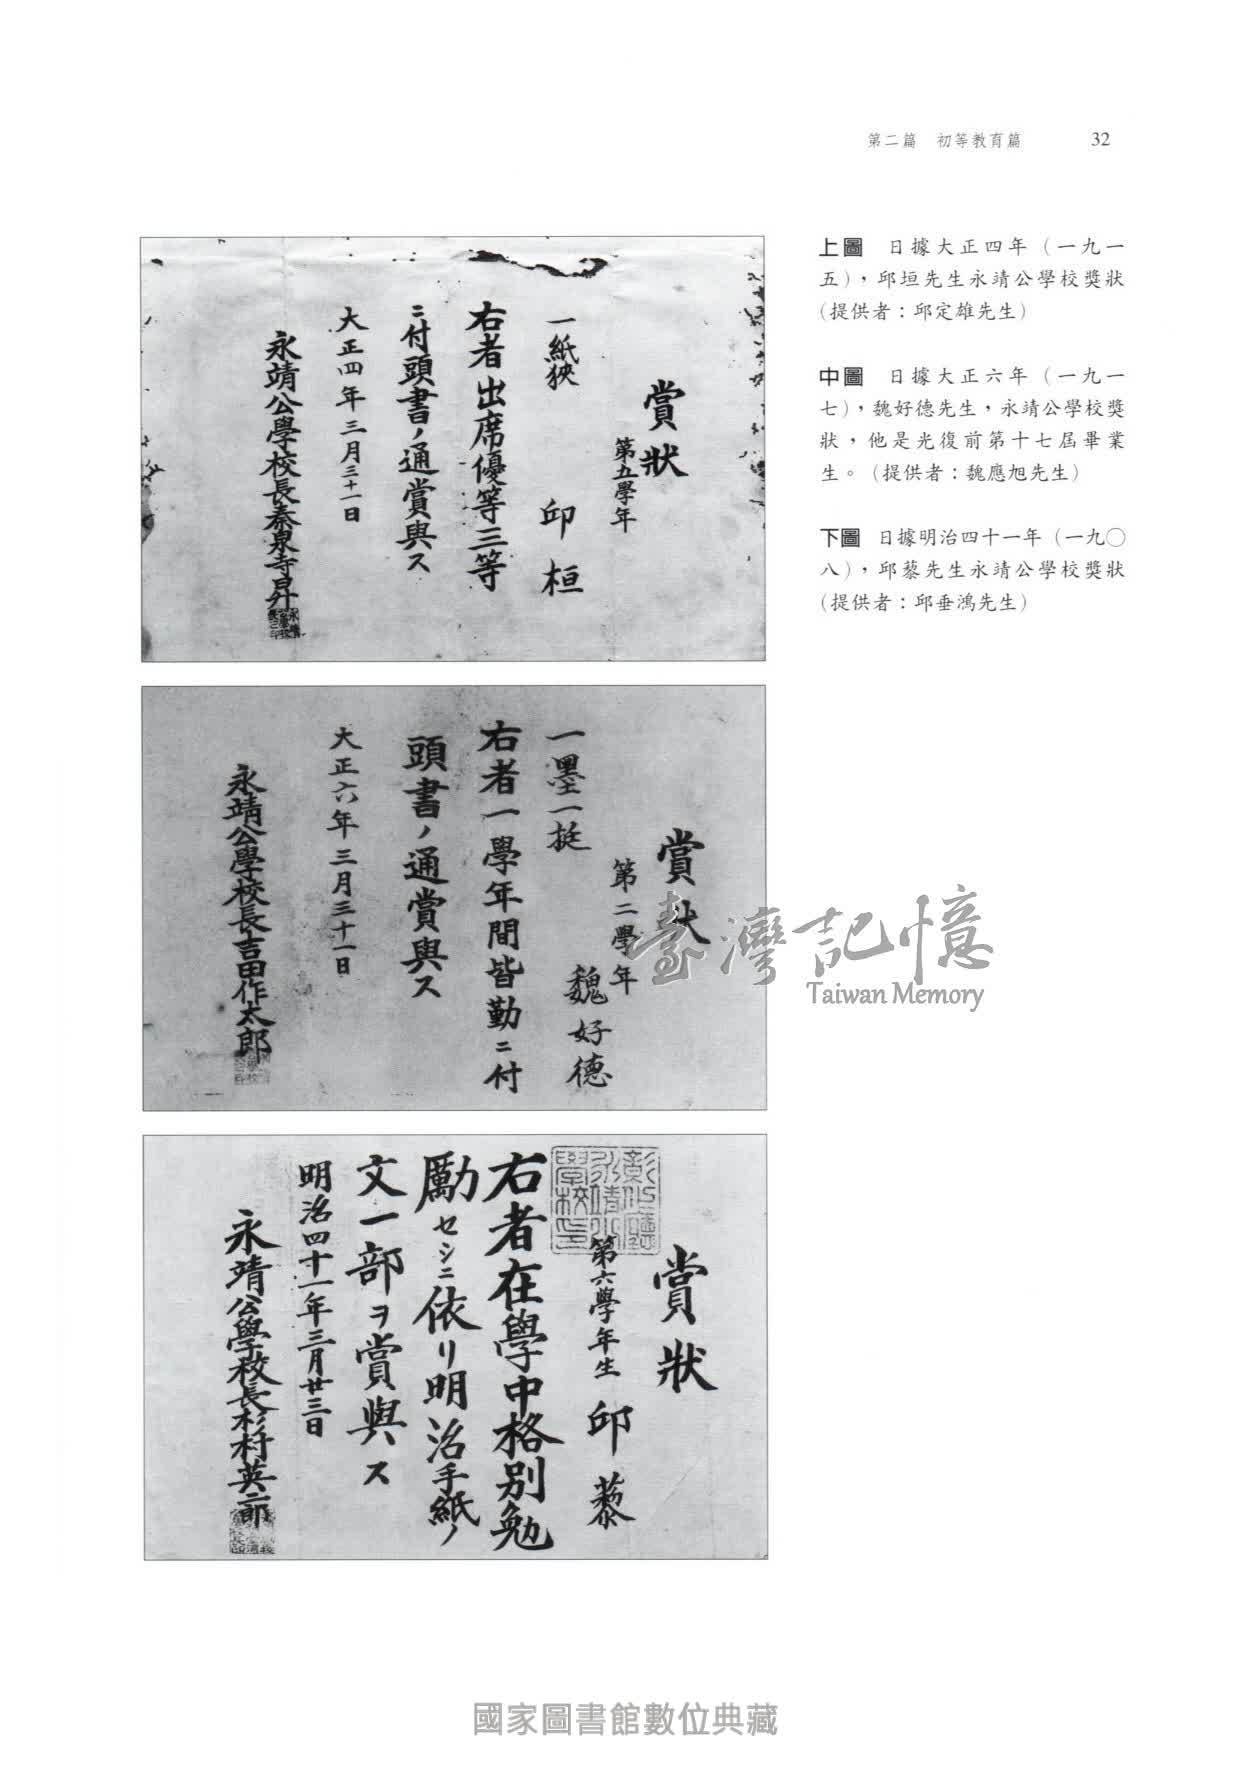 第二篇 初等教育篇 32
上圖 日據大正四年（一九一
五），邱垣先生永靖公學校獎狀
（提供者：邱定雄先生）
中圖 日據大正六年（一九一
七），魏好德先生，永靖公學校獎
狀，他是光復前第十七屆畢業
生。（提供者：魏應旭先生）
下圖 日據明治四十一年（一九〇
八），邱藜先生永靖公學校獎狀
（提供者：邱垂鴻先生）
賞狀
第五學年
邱桓
一紙挾
右者出席優等三等
ニ付頭書ノ通賞與ス
大正四年三月三十一日
永靖公學校長秦泉寺昇
賞狀
第二學年
魏好德
一墨一挺
右者一學年間皆勤ニ付
頭書ノ通賞與ス
大正六年三月三十一日
永靖公學校長吉田作太郎
賞狀
第六學年生 邱藜
右者在學中格別勉
勵セシニ依リ明治手紙ノ
文一部ヲ賞與ス
明治四十一年三月廿三日
永靖公學校長杉村英二郎
臺灣記憶
Taiwan Memory
國家圖書館數位典藏